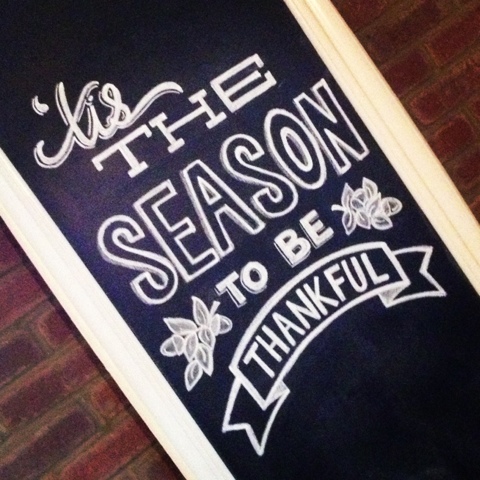 'tis
THE
SEASON
TO BE
THANKFUL